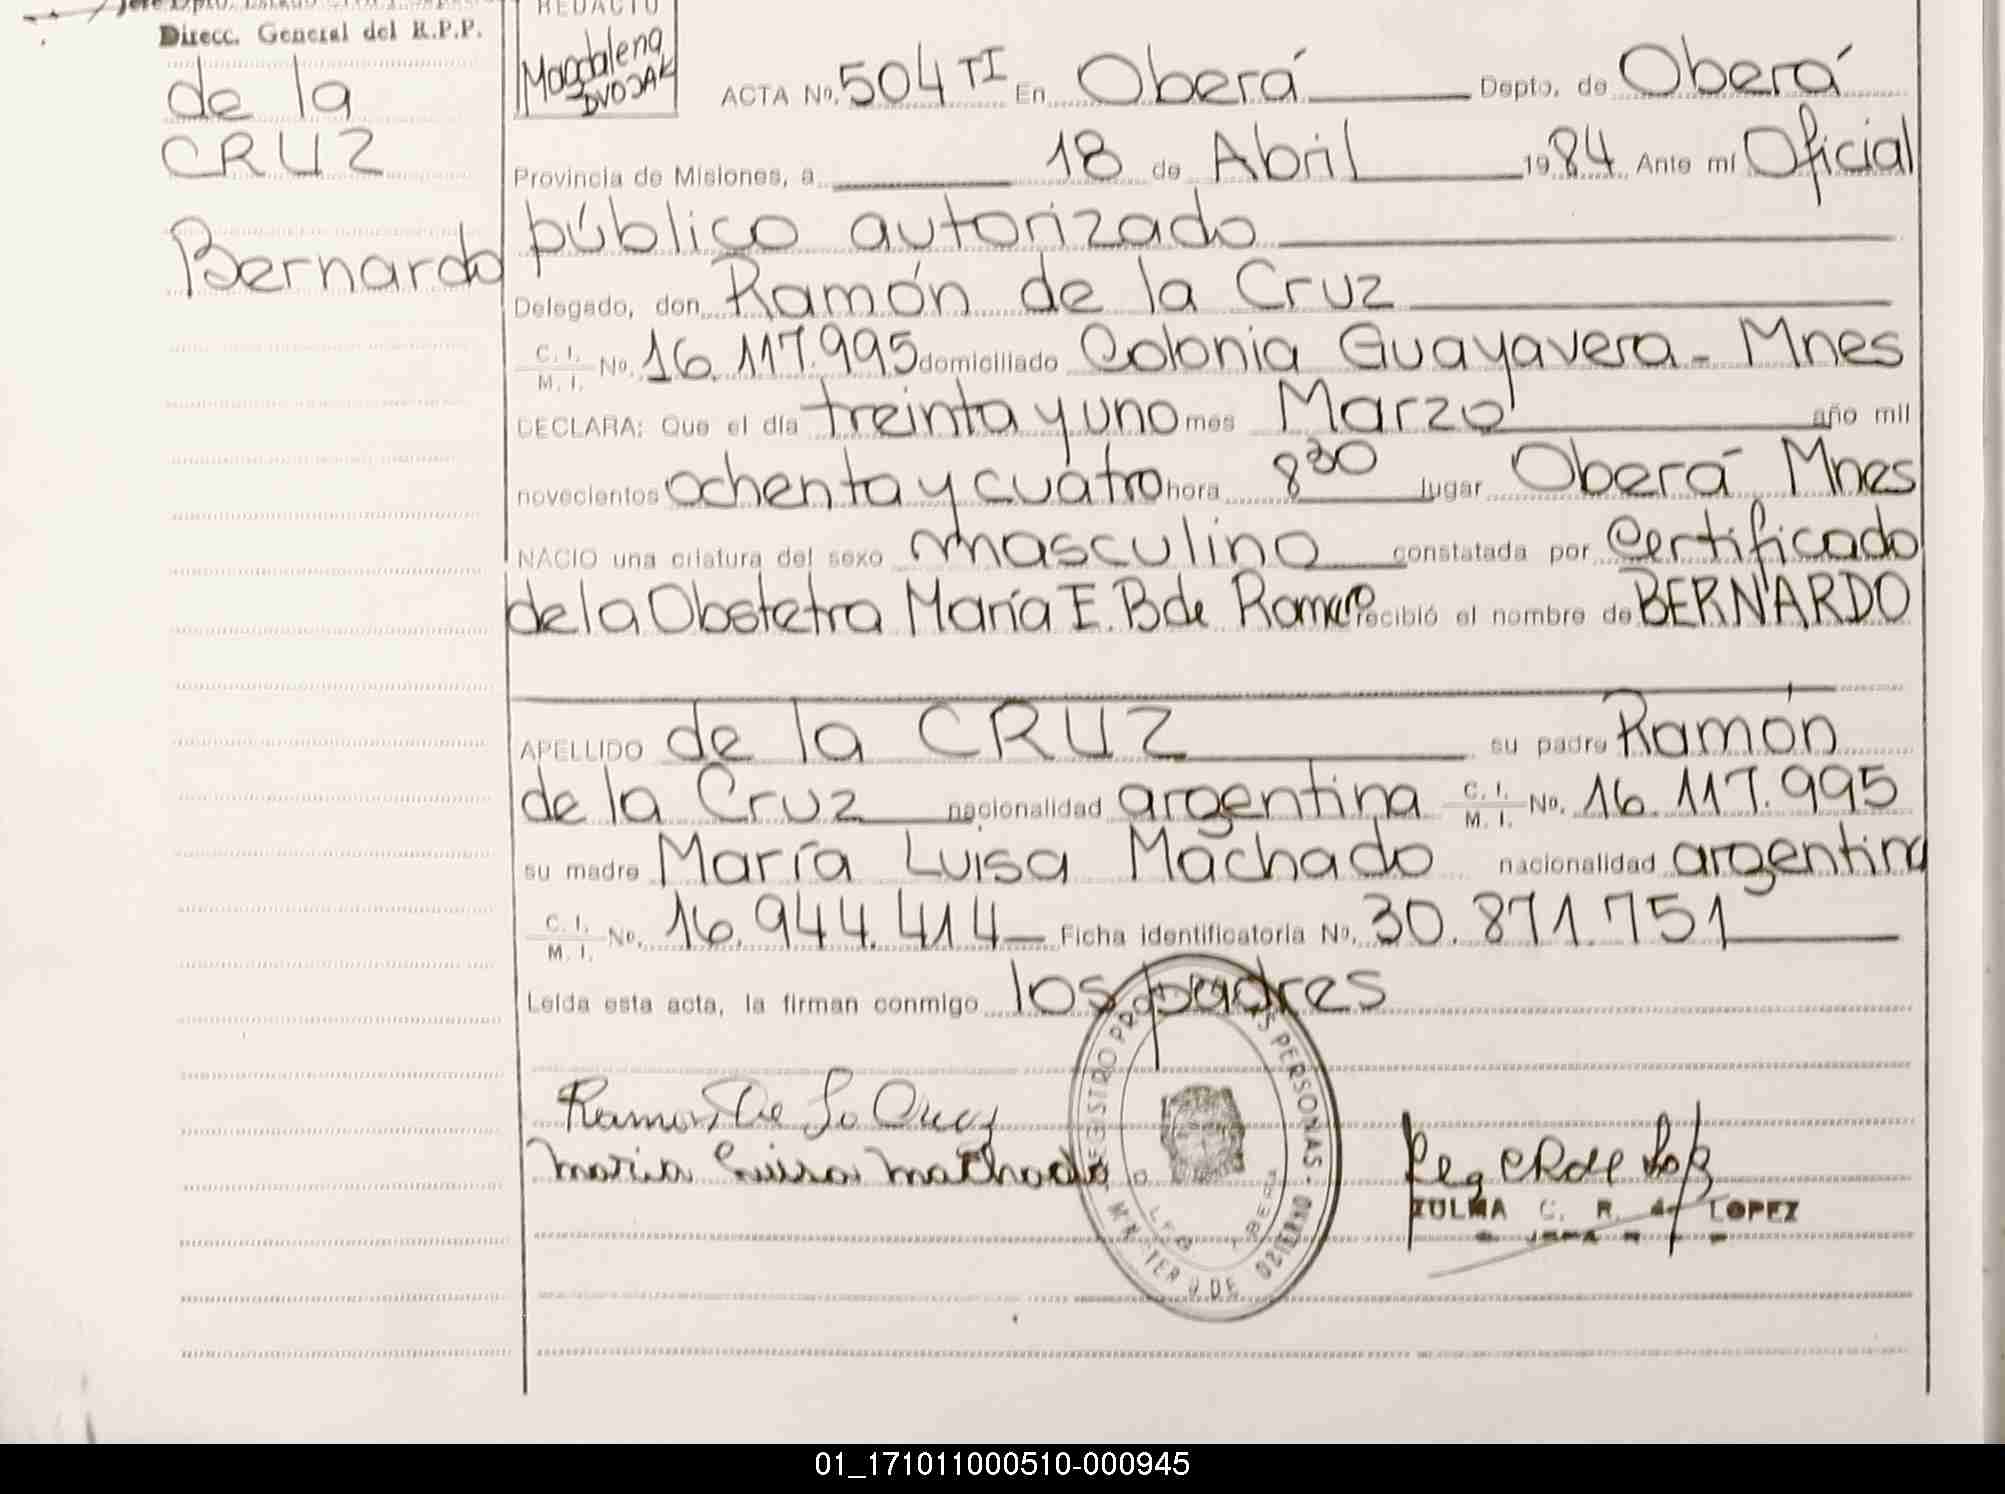 Direcc. General del R.P.P.
de la
CRUZ
Bernardo
REDACTO
Magdalena
DVOJAK
ACTA No. 504 TI En Oberá Depto. de Oberá
Provincia de Misiones, a 18 de Abril 1984 Ante mí Oficial
público autorizado
Delegado, don Ramón de la Cruz
C. I.
M. I. No. 16.117.995 domiciliado Colonia Guayavera - Mnes
DECLARA: Que el día treinta y uno mes Marzo año mil
novecientos ochenta y cuátro hora 8 30 lugar Oberá Mnes
NACIO una criatura del sexo masculino constatada por Certificado
de la Obstetra María E. B de Romero recibió el nombre de BERNARDO
APELLIDO de la CRUZ su padre Ramón
de la Cruz nacionalidad argentina C. I. M. I. No. 16.117.995
su madre María Luisa Machado nacionalidad argentina
C. I.
M. I. No. 16.944.414 Ficha identificatoria No. 30.871.751
Leída esta acta, la firman conmigo los padres
Ramon De La Cruz
maria luisa machado
ZULMA C. R. de LOPEZ
01_171011000510-000945